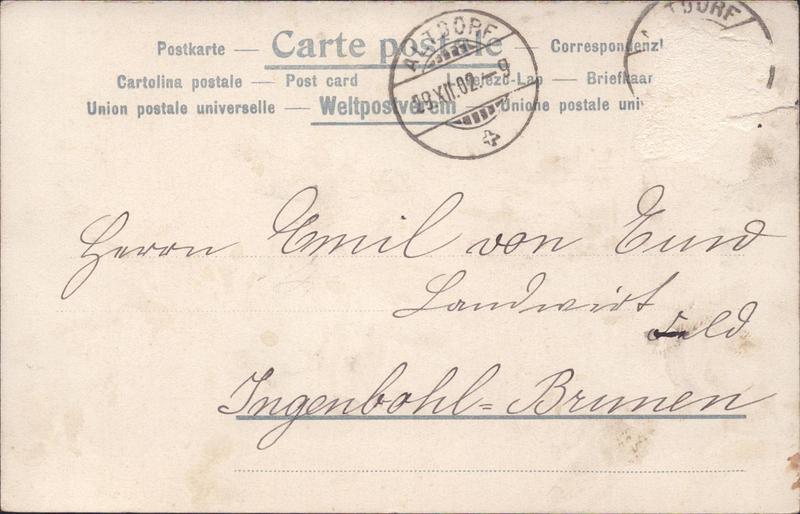 Postkarte — Carte postale — Correspondenz
Cartolina postale — Post card — Levelező-Lap — Briefkaar
Union postale universelle — Weltpostverein — Unione postale uni
ALTDORF
29.XII.02.–9
TDORF
Herrn Emil von Euw
Landwirt
Ingenbohl=Brunnen